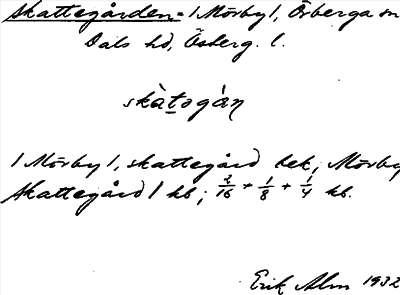 Skattegården = /Mörby/, Örberga sn
Dals hd, Ösberg. l.
skàtəgàn
/Mörby/, skattegård bek; Mörby
Skattegård / hb; 2/16 + 1/8 + 1/4 hb.
Erik Alm 1932